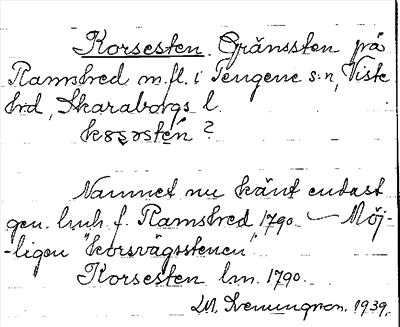 Korsesten. Gränssten på
Ramstred m.fl. i Tengene s:n, Viste
hrd, Skaraborgs l.
?
Namnet nu känt endast
gen. lmh f. Ramstred, 1790. — Möj-
-ligen "korsvägsstenen".
Korsesten lm. 1790.
1939.